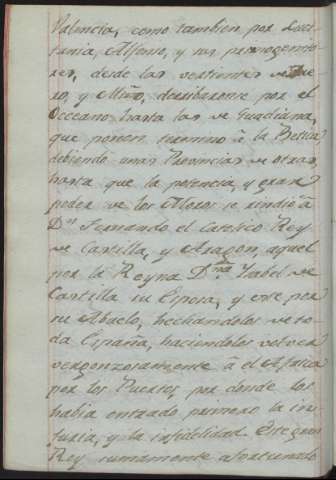 Valencia, como tambien por Lusi-
tania, Alfonso, y sus progenito-
res, desde las vertientes de Due-
ro, y Miño, derribaronse por el
Occeano hasta las de Guadiana,
que ponen termino â la Betica,
debiendo unas Provincias de otras,
hasta que la potencia, y gran
poder de los Moros se rindiò â
Dⁿ Fernando el Catolico Rey
de Castilla, y Aragon, aquel
por la Reyna Dⁿᵃ Isabel de
Castilla su Esposa, y este por
su Abuelo, hechandolos de to-
da España, haciendolos volver
vergonzosamente â el Africa
por los Puertos, por donde los
habia entrado primero la in-
juria, y la infidelidad. Este gran
Rey sumamente afortunado